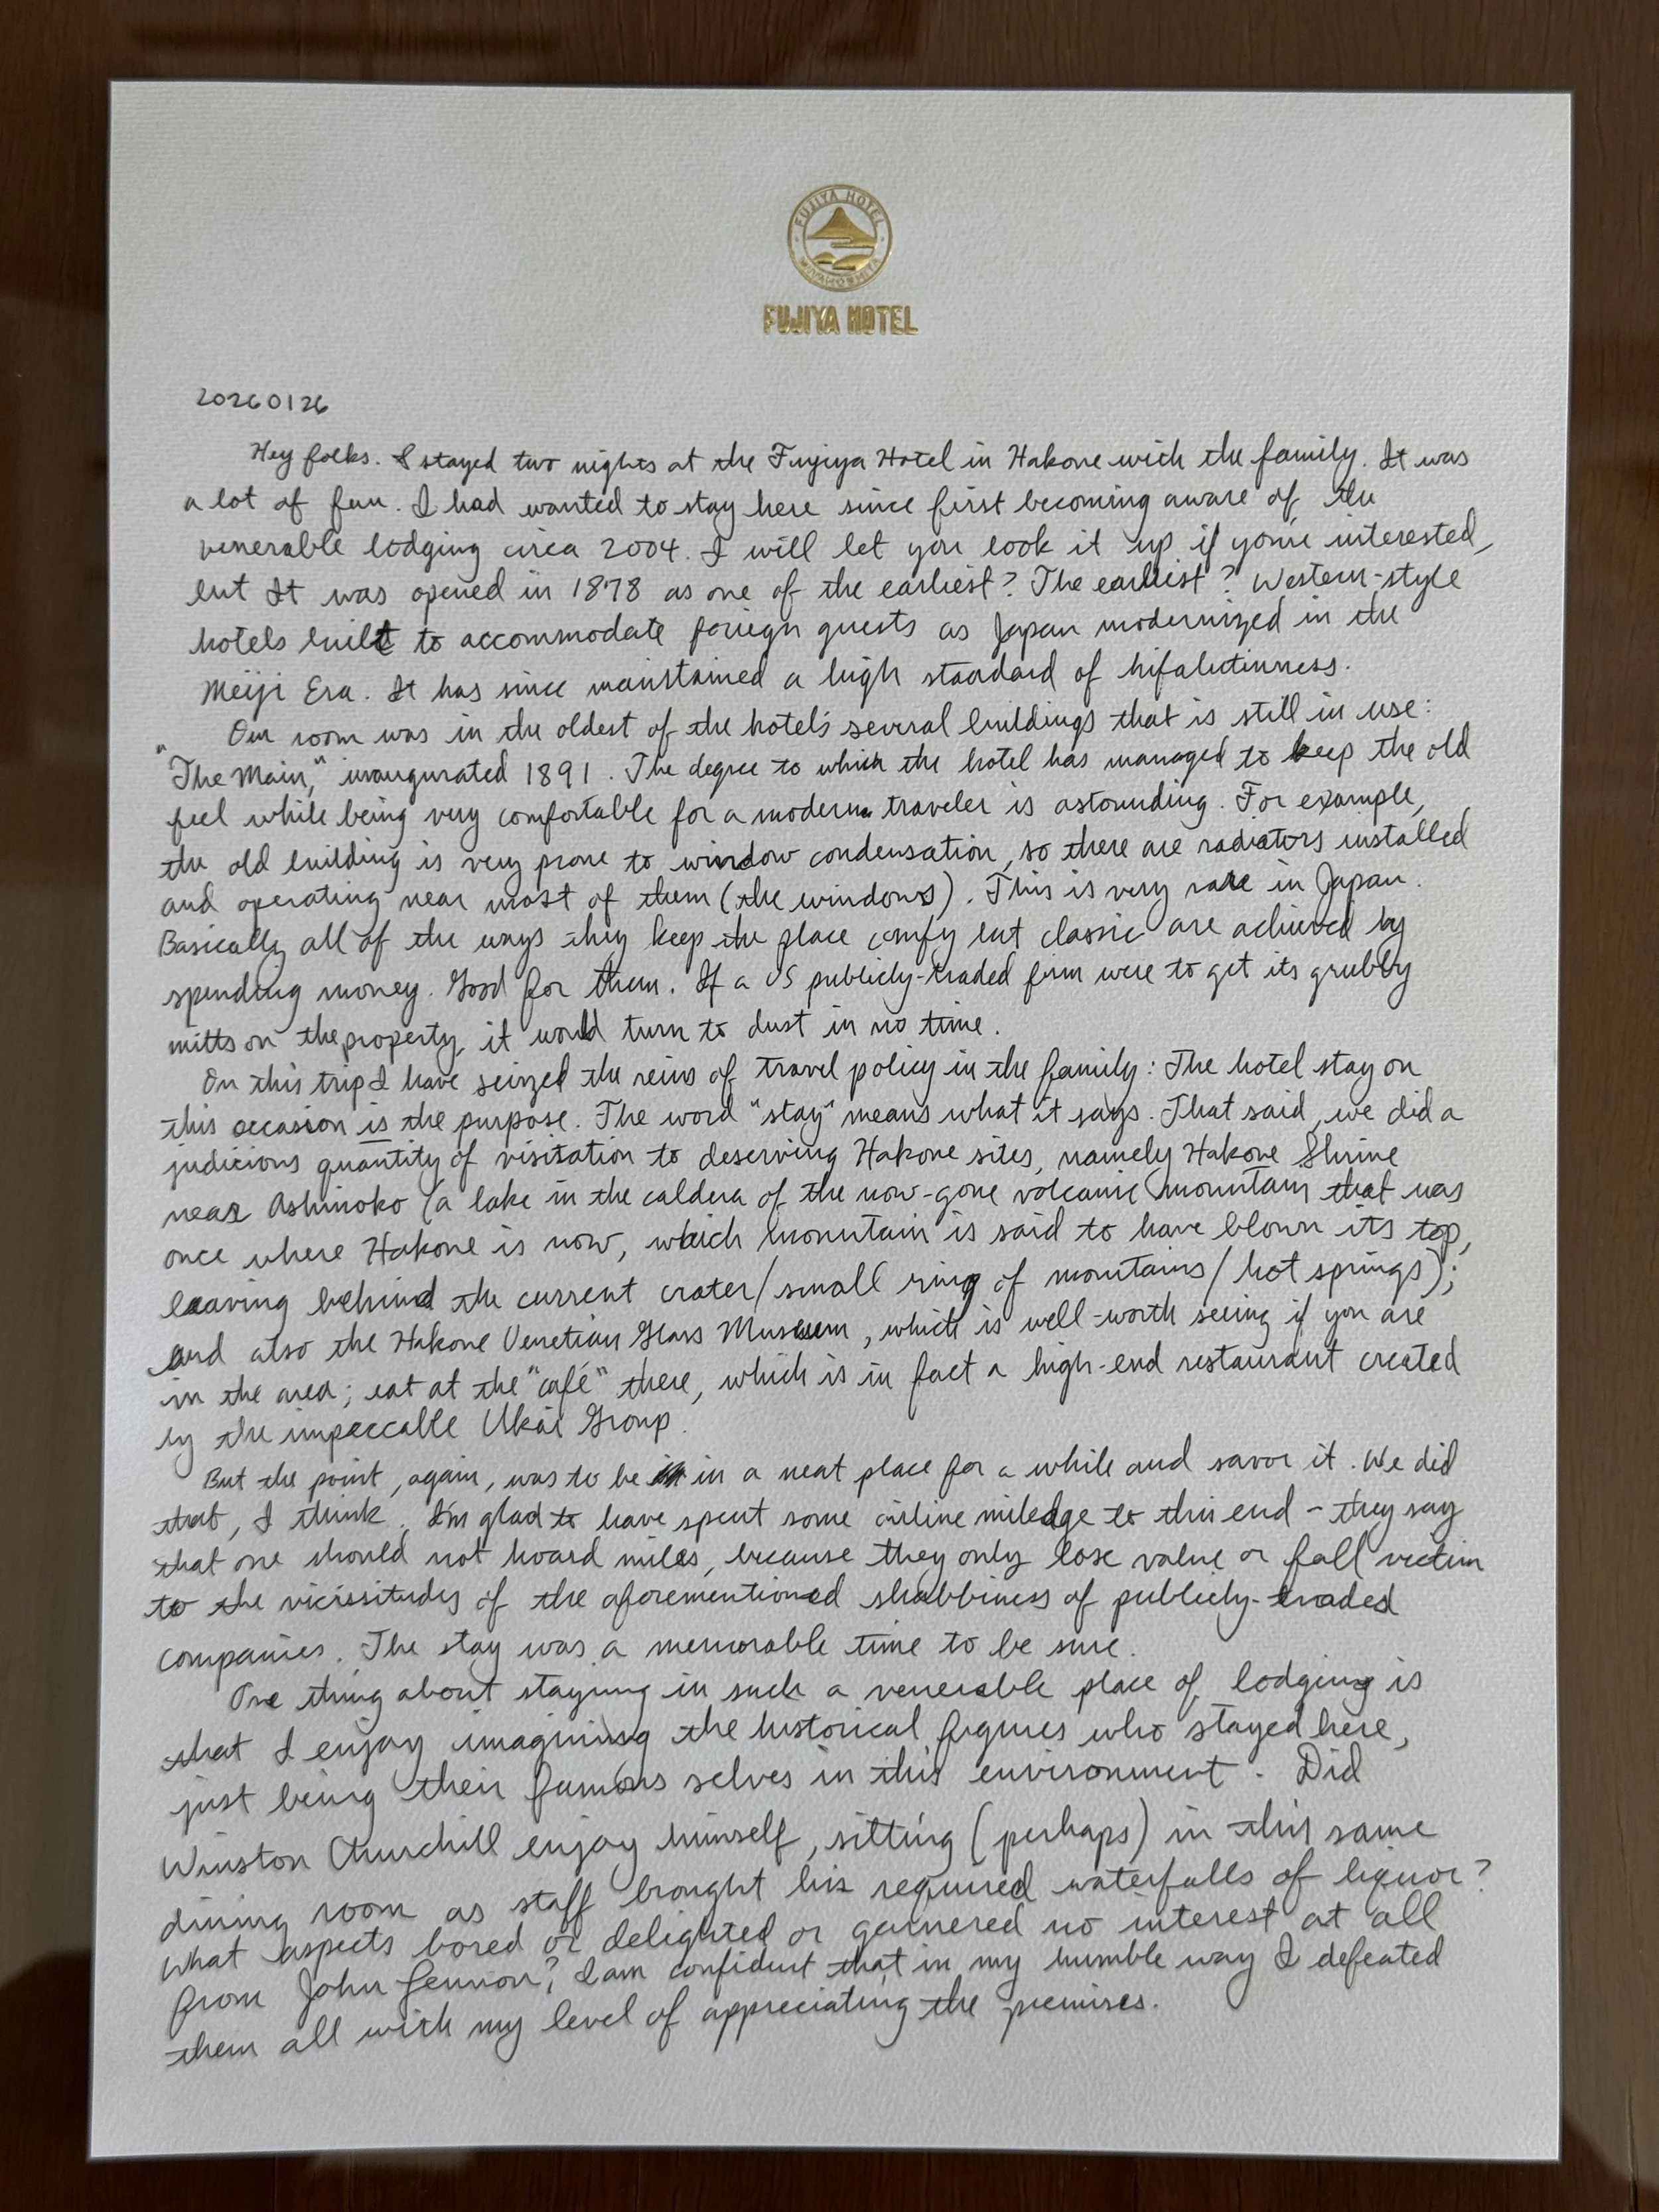 FUJIYA HOTEL
MIYANOSHITA
FUJIYA HOTEL
20260126
Hey folks. I stayed two nights at the Fujiya Hotel in Hakone with the family. It was
a lot of fun. I had wanted to stay here since first becoming aware of the
venerable lodging circa 2004. I will let you look it up if you're interested,
but It was opened in 1878 as one of the earliest? The earliest? Western-style
hotels built to accommodate foreign guests as Japan modernized in the
Meiji Era. It has since maintained a high standard of hifalutinness.
Our room was in the oldest of the hotel's several buildings that is still in use:
"The Main," inaugurated 1891. The degree to which the hotel has managed to keep the old
feel while being very comfortable for a modern traveler is astounding. For example,
the old building is very prone to window condensation, so there are radiators installed
and operating near most of them (the windows). This is very rare in Japan.
Basically all of the ways they keep the place comfy but classic are achieved by
spending money. Good for them. If a US publicly-traded firm were to get its grubby
mitts on the property, it would turn to dust in no time.
On this trip I have seized the reins of travel policy in the family: The hotel stay on
this occasion is the purpose. The word "stay" means what it says. That said, we did a
judicious quantity of visitation to deserving Hakone sites, namely Hakone Shrine
near Ashinoko (a lake in the caldera of the now-gone volcanic mountain that was
once where Hakone is now, which mountain is said to have blown its top,
leaving behind the current crater/small ring of mountains/hot springs);
and also the Hakone Venetian Glass Museum, which is well-worth seeing if you are
in the area; eat at the "café" there, which is in fact a high-end restaurant created
by the impeccable Ukai Group.
But the point, again, was to be in a neat place for a while and savor it. We did
that, I think. I'm glad to have spent some airline miledge to this end - they say
that one should not hoard miles, because they only lose value or fall victim
to the vicissitudes of the aforementioned shabbiness of publicly-traded
companies. The stay was a memorable time to be sure.
One thing about staying in such a venerable place of lodging is
that I enjoy imagining the historical figures who stayed here,
just being their famous selves in this environment. Did
Winston Churchill enjoy himself, sitting (perhaps) in this same
dining room as staff brought his required waterfalls of liquor?
What aspects bored or delighted or garnered no interest at all
from John Lennon? I am confident that in my humble way I defeated
them all with my level of appreciating the premises.